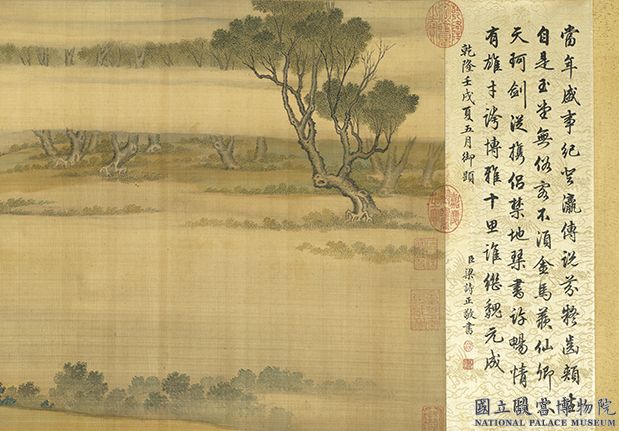 當年盛事紀登瀛傳說芬凝齒頰生
自是玉堂無俗客不須金馬羨仙卿
天珂劍從携侶禁地琴書許暢情同
有雄才誇博雅十思誰繼魏元成
乾隆壬戌夏五月御題
臣梁詩正敬書
國立故宮博物院
NATIONAL PALACE MUSEUM